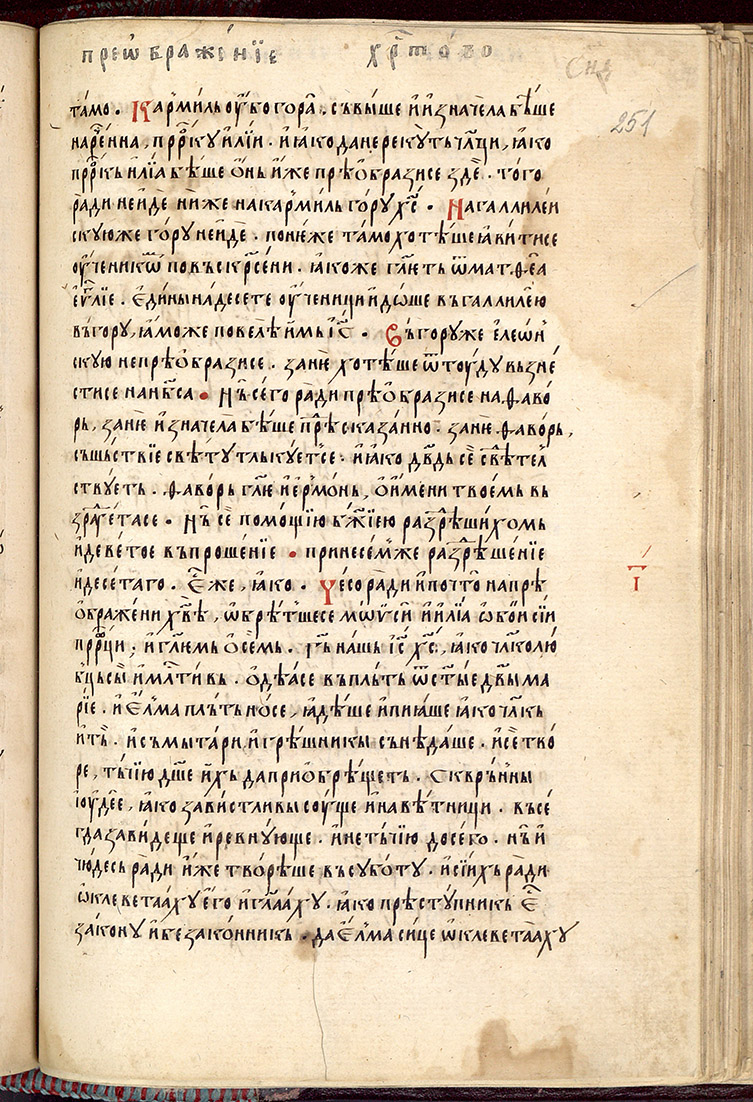 преѡбраже́нїе хр҇то́во
снд
251
та́мо · Ка́рмиль оу҆́бо гора̀ , съвы́ше и҆ и҆значе́ла бѣ́ше
нарѐ́нна , прⷪ҇ркꙋ и҆лїи̂ · и҆ ꙗ҆́ко да нерекꙋ́ть чл҃ци , ꙗ҆́ко
прⷪ҇ркь и҆лїа бѣ́ше ѻ҆́нь и҆́же прѣѡ҆бразисе здѐ · то́го
ра́ди неи́де ни́же на ка́рмиль го́рꙋ хс҃ · На галлиле́и
скꙋю же го́рꙋ неи́де · поне́же та́мо хотѣ́ше ꙗ҆ви́тисе
оу҆ченикѡ́м по въскр҇се́ни · ꙗ҆́коже гл҃еть ѿ матѳе́а
є҆ѵⷢ҇лїе · є҆ди́ны на́десете оу҆ченици и҆дѡ́ше въ галлиле́ю
въ го́рꙋ , ꙗ҆́може повелѣ̀ и҆́мь і҆с҃ · Въ горꙋ же є҆леѡ́н
скꙋю непрѣѡ҆бра́зисе · занѐ хотѣ́ше ѿтꙋ́дꙋ възне́
стисе на нб҃са · Нь̀ сего̀ ра́ди прѣѡ҆бразисе на ѳаво́
рь , занѐ и҆знаце́ла бѣ́ше прⷣѣсказа́нно · занѐ ѳаво́рь ,
съшьствїе свѣ́тꙋ тлькꙋе́тсе · и҆ ꙗ҆́ко дв҃дь сѐ свⷣѣ́тел
ствꙋеть · ѳаво́рь гл҃ю и҆ є҆рмо́нь , ѻ҆ и҆́мени твое́мь въ
зра́дꙋетасе · Нь̀ сѐ по́мощїю бж҃їею разⷣрѣши́хомь
и҆ деве́тое въпроше́нїе · принесе́м же разⷣрѣше́нїе
и҆ десе́таго · є҆́же , ꙗ҆́ко · Чесо̀ ра́ди и҆ почто̀ на прѣ
ѡ҆браже́ни хв҃ѣ , ѡ҆брѣ́тшесе мѡѵ̈сі́и и҆ и҆лїа̀ ѻ҆бои сїи
прⷪ҇рци ; и҆ гл҃емь ѻ҆ се́мь · гь҃ на́шь і҆с҃ хс҃ , ꙗ҆́ко чл҃колю
бць сы́и и҆ млⷭ҇тивь · ѻ҆дѣ́асе въ пль́ть ѿ ст҃ые дв҃ы ма
рїе · и҆ є҆лма̀ пль́ть но́се , ꙗ҆дѣ́ше и҆ пиꙗ́ше ꙗ҆́ко чл҃кь
и҆́ть · и҆ съ мытари̂ и҆ грѣ́шникы сънѣда́ше · и҆ сѐ тво
ре , ты́чїю дш҃е и҆́хь да приѡ҆бре́щеть · Сквръ́нны
іꙋ́дее , ꙗ҆́ко зави́стливы соу́ще и҆ навѣ́тници · въсе
гда̀ зави́деще и҆ ревнꙋ́юще · и҆ не ты́чїю досе́го · нь̀ и҆
чю́десь ра́ди и҆́же тво́реше въ сꙋбо́тꙋ · и҆ сїи́хь ра́ди
ѡ҆клевета́ахꙋ є҆го̀ и҆ гл҃аахꙋ · ꙗ҆́ко прѣстꙋ́пникь є҆с
зако́нꙋ и҆ безако́нникь · да є҆лма̀ си́це ѡ҆клевета́ахꙋ
і҃